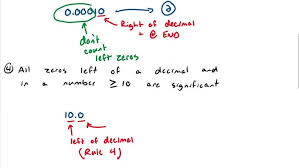 0.00010 → ②
Right of decimal
+ @ END
don't
count
left zeros
④ All zeros left of a decimal and
in a number ≥ 10 are significant
10.0
left of decimal
(Rule 4)